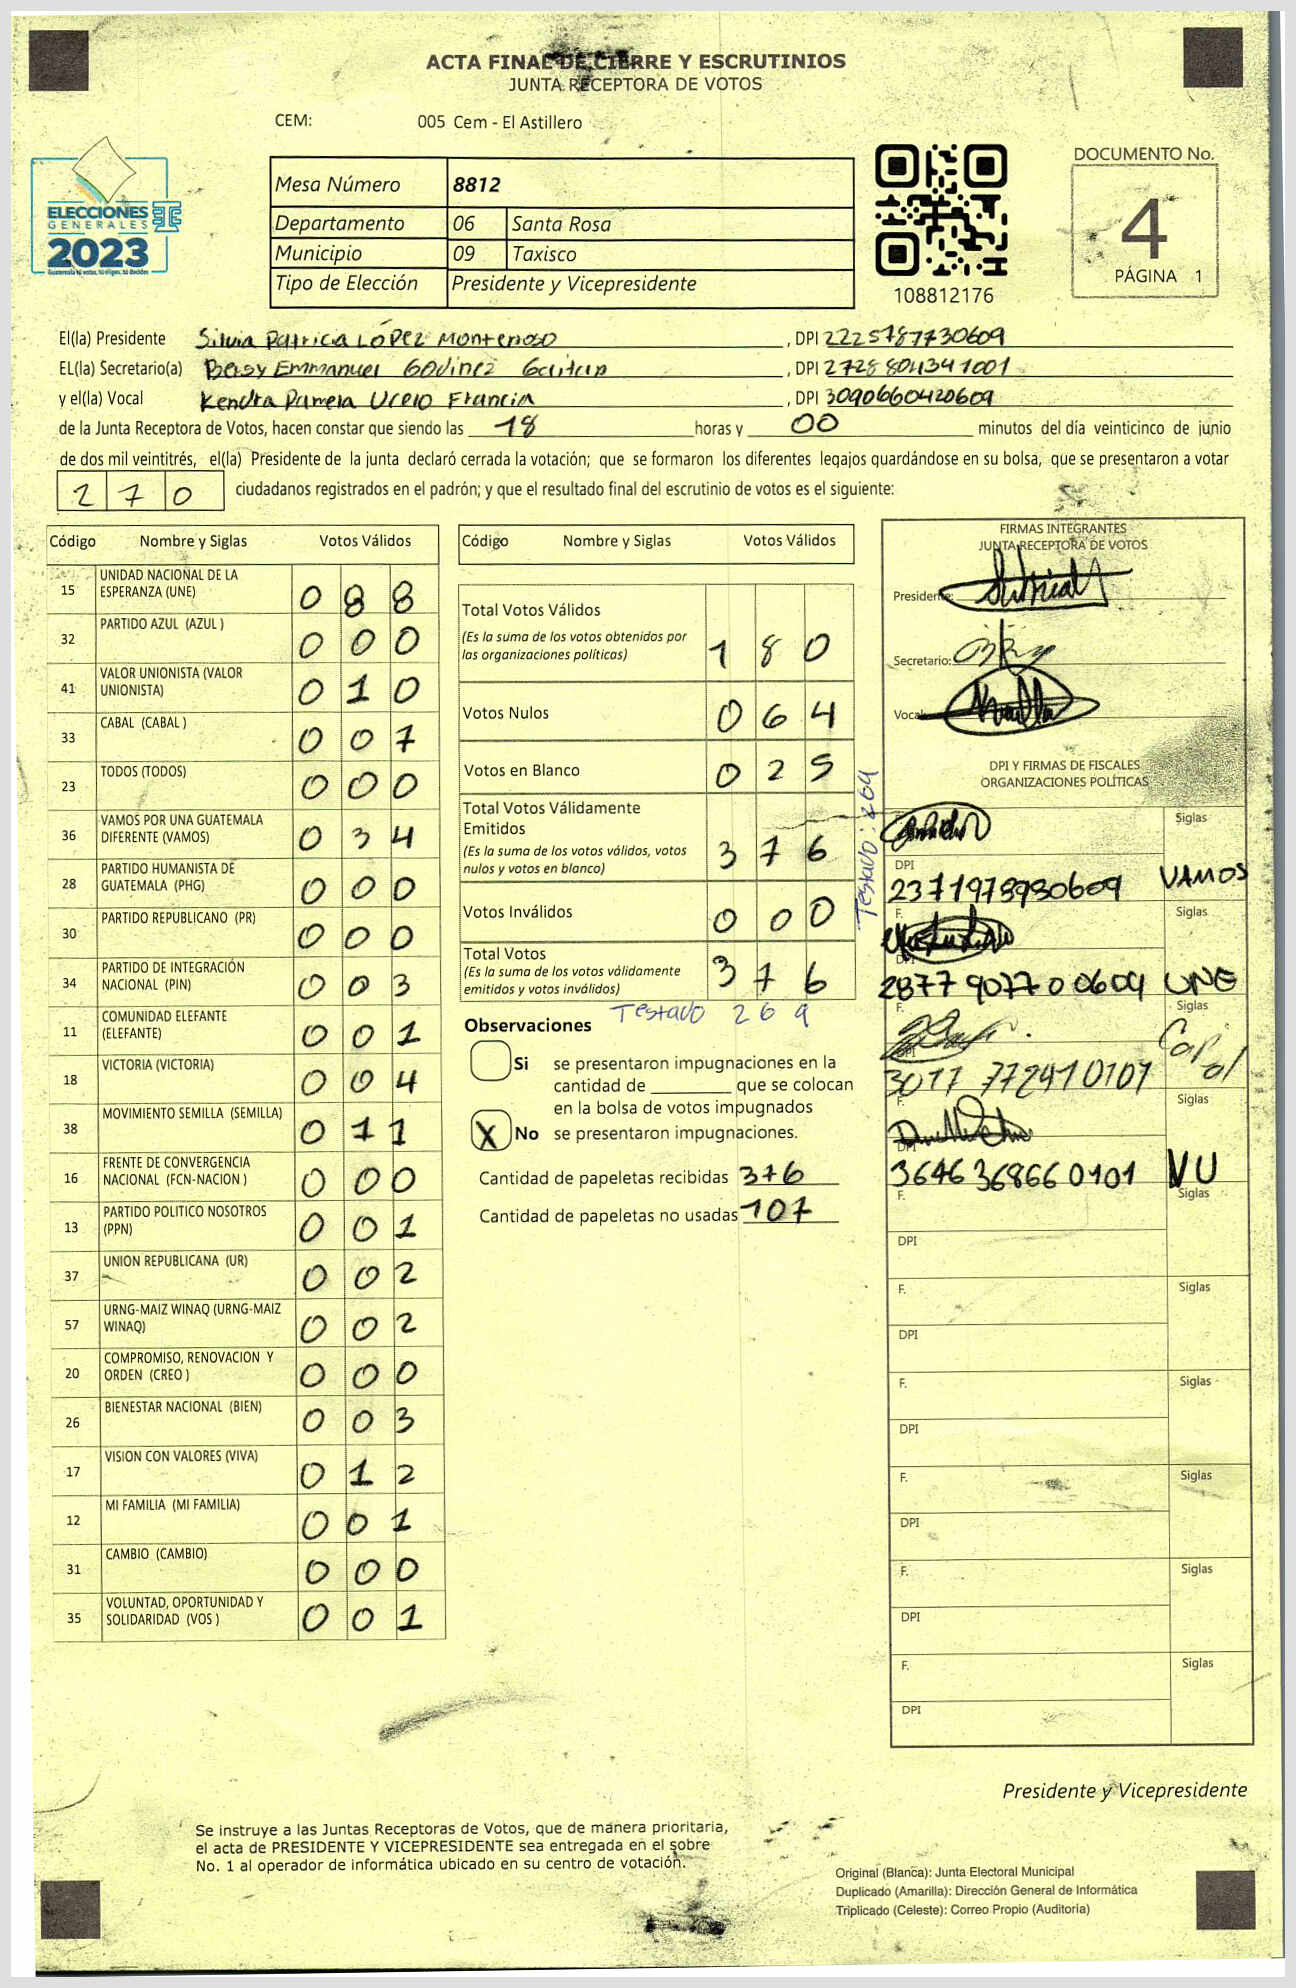 ACTA FINAL DE CIERRE Y ESCRUTINIOS
JUNTA RECEPTORA DE VOTOS
CEM: 005 Cem - El Astillero
DOCUMENTO No.
4
PÁGINA 1
ELECCIONES
GENERALES
2023
Mesa Número 8812
Departamento 06 Santa Rosa
Municipio 09 Taxisco
Tipo de Elección Presidente y Vicepresidente
108812176
El(la) Presidente Silvia Patricia López Monterroso, DPI 2225787730609
EL(la) Secretario(a) Betsy Emmanuel Godinez Gaitan, DPI 2728804341001
y el(la) Vocal Kendra Pamela Ucelo Francia, DPI 3090660420609
de la Junta Receptora de Votos, hacen constar que siendo las 18 horas y 00 minutos del día veinticinco de junio
de dos mil veintitrés, el(la) Presidente de la junta declaró cerrada la votación; que se formaron los diferentes legajos guardándose en su bolsa, que se presentaron a votar
270 ciudadanos registrados en el padrón; y que el resultado final del escrutinio de votos es el siguiente:
Código Nombre y Siglas Votos Válidos
15 UNIDAD NACIONAL DE LA
ESPERANZA (UNE) 088
32 PARTIDO AZUL (AZUL ) 000
41 VALOR UNIONISTA (VALOR
UNIONISTA) 010
33 CABAL (CABAL ) 007
23 TODOS (TODOS) 000
36 VAMOS POR UNA GUATEMALA
DIFERENTE (VAMOS) 034
28 PARTIDO HUMANISTA DE
GUATEMALA (PHG) 000
30 PARTIDO REPUBLICANO (PR) 000
34 PARTIDO DE INTEGRACIÓN
NACIONAL (PIN) 003
11 COMUNIDAD ELEFANTE
(ELEFANTE) 001
18 VICTORIA (VICTORIA) 004
38 MOVIMIENTO SEMILLA (SEMILLA) 011
16 FRENTE DE CONVERGENCIA
NACIONAL (FCN-NACION ) 000
13 PARTIDO POLITICO NOSOTROS
(PPN) 001
37 UNION REPUBLICANA (UR) 002
57 URNG-MAIZ WINAQ (URNG-MAIZ
WINAQ) 002
20 COMPROMISO, RENOVACION Y
ORDEN (CREO ) 000
26 BIENESTAR NACIONAL (BIEN) 003
17 VISION CON VALORES (VIVA) 012
12 MI FAMILIA (MI FAMILIA) 001
31 CAMBIO (CAMBIO) 000
35 VOLUNTAD, OPORTUNIDAD Y
SOLIDARIDAD (VOS ) 001
Código Nombre y Siglas Votos Válidos
Total Votos Válidos
(Es la suma de los votos obtenidos por
las organizaciones políticas) 180
Votos Nulos 064
Votos en Blanco 025
Total Votos Válidamente
Emitidos
(Es la suma de los votos válidos, votos
nulos y votos en blanco) 376
Testado: 269
Votos Inválidos 000
Total Votos
(Es la suma de los votos válidamente
emitidos y votos inválidos) 376
Testado 269
Observaciones
Si se presentaron impugnaciones en la
cantidad de ________ que se colocan
en la bolsa de votos impugnados
X No se presentaron impugnaciones.
Cantidad de papeletas recibidas 376
Cantidad de papeletas no usadas 107
FIRMAS INTEGRANTES
JUNTA RECEPTORA DE VOTOS
Presidente:
Secretario:
Vocal:
DPI Y FIRMAS DE FISCALES
ORGANIZACIONES POLÍTICAS
Siglas
DPI
2371978980609 VAMOS
F. Siglas
DPI
2877 90770 0609 UNE
F. Siglas
DPI
3017 772410101
F. Siglas
DPI
3646 368660101 VU
F. Siglas
DPI
F. Siglas
DPI
F. Siglas
DPI
F. Siglas
DPI
F. Siglas
DPI
F. Siglas
DPI
Presidente y Vicepresidente
Se instruye a las Juntas Receptoras de Votos, que de manera prioritaria,
el acta de PRESIDENTE Y VICEPRESIDENTE sea entregada en el sobre
No. 1 al operador de informática ubicado en su centro de votación.
Original (Blanca): Junta Electoral Municipal
Duplicado (Amarilla): Dirección General de Informática
Triplicado (Celeste): Correo Propio (Auditoría)